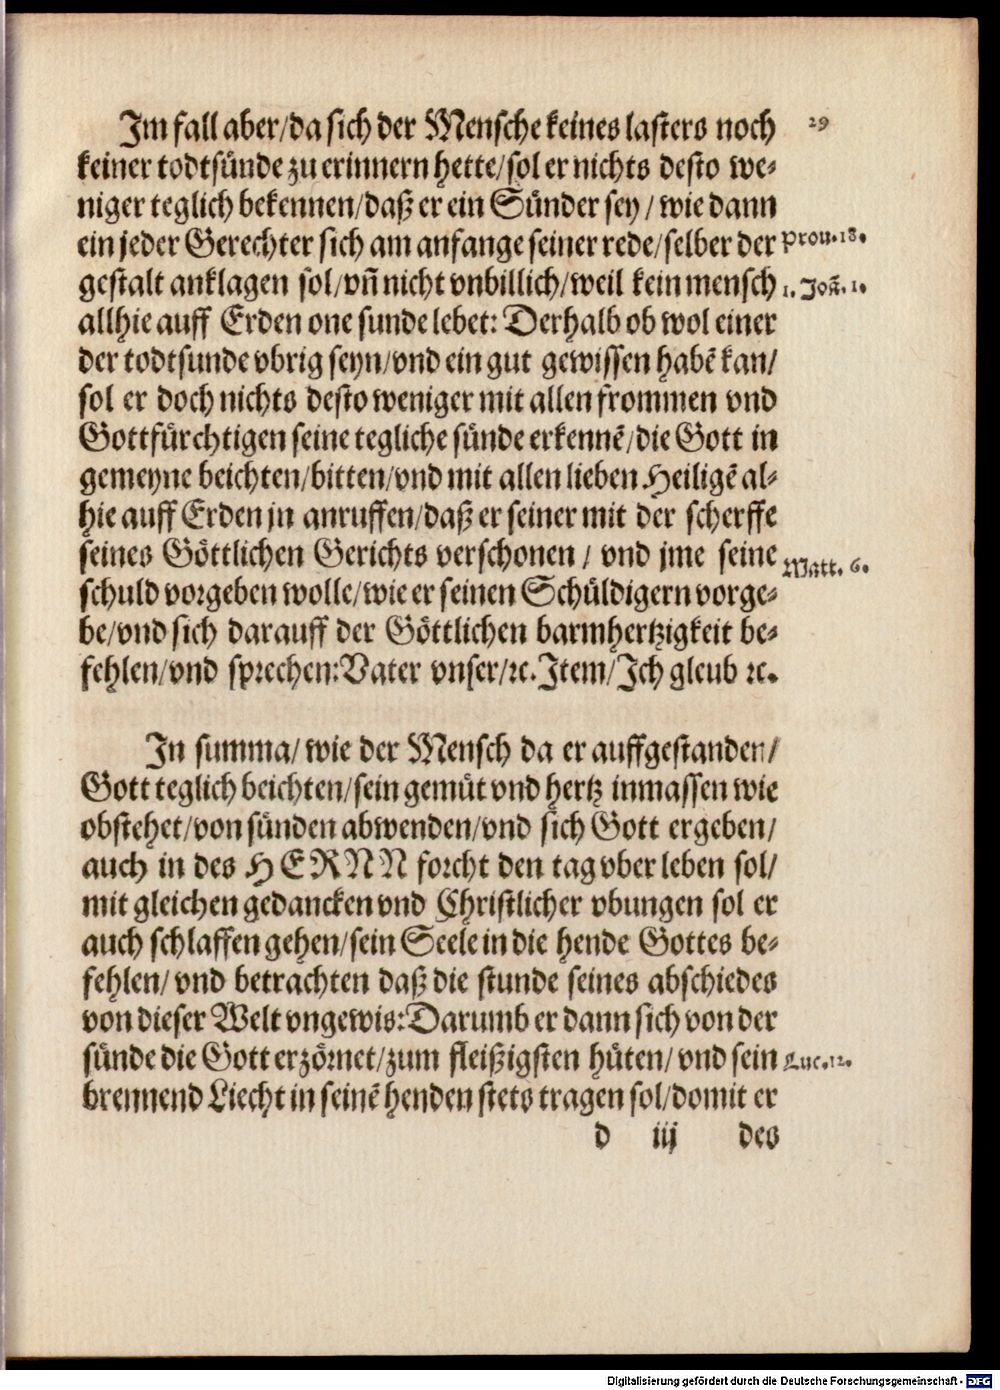 Im fall aber/da sich der Mensche keines lasters noch
29
keiner todtsünde zu erinnern hette/sol er nichts desto we-
niger teglich bekennen/daß er ein Sünder sey/wie dann
ein jeder Gerechter sich am anfange seiner rede/selber der
Prou.18.
gestalt anklagen sol/vñ nicht vnbillich/weil kein mensch
1. Joã. 1.
allhie auff Erden one sunde lebet: Derhalb ob wol einer
der todtsunde vbrig seyn/vnd ein gut gewissen habẽ kan/
sol er doch nichts desto weniger mit allen frommen vnd
Gottfürchtigen seine tegliche sünde erkennẽ/die Gott in
gemeyne beichten/bitten/vnd mit allen lieben Heiligẽ al-
hie auff Erden jn anruffen/daß er seiner mit der scherffe
seines Göttlichen Gerichts verschonen/vnd jme seine
Matt. 6.
schuld vorgeben wolle/wie er seinen Schüldigern vorge-
be/vnd sich darauff der Göttlichen barmhertzigkeit be-
fehlen/vnd sprechen:Vater vnser/ꝛc.Item/Ich gleub ꝛc.
In summa/wie der Mensch da er auffgestanden/
Gott teglich beichten/sein gemüt vnd hertz inmassen wie
obstehet/von sünden abwenden/vnd sich Gott ergeben/
auch in des HERNN forcht den tag vber leben sol/
mit gleichen gedancken vnd Christlicher vbungen sol er
auch schlaffen gehen/sein Seele in die hende Gottes be-
fehlen/vnd betrachten daß die stunde seines abschiedes
von dieser Welt vngewis:Darumb er dann sich von der
sünde die Gott erzörnet/zum fleißigsten hüten/vnd sein
Luc.12.
brennend Liecht in seinẽ henden stets tragen sol/domit er
d iij des
Digitalisierung gefördert durch die Deutsche Forschungsgemeinschaft - DFG